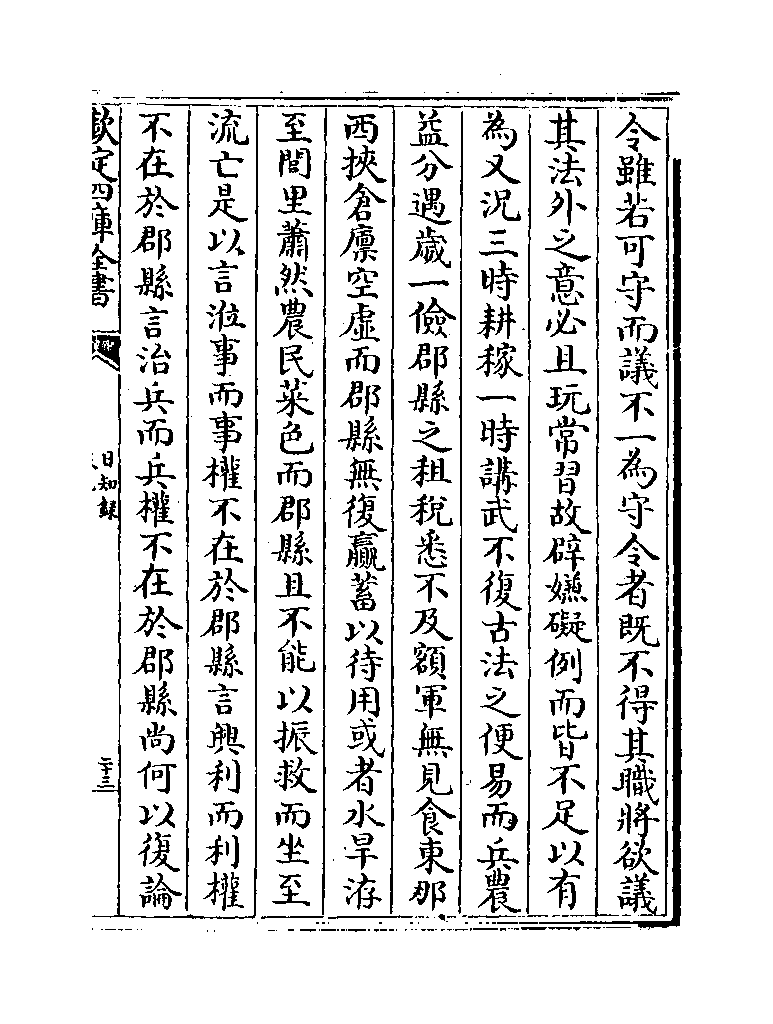 令雖若可守而議不一為守令者既不得其職將欲議
其法外之意必且玩常習故辟嫌礙例而皆不足以有
為又況三時耕稼一時講武不復古法之便易而兵農
益分遇歲一儉郡縣之租稅悉不及額軍無見食東那
西挾倉廪空虛而郡縣無復贏蓄以待用或者水旱洊
至閭里蕭然農民菜色而郡縣且不能以振救而坐至
流亡是以言涖事而事權不在於郡縣言興利而利權
不在於郡縣言治兵而兵權不在於郡縣尚何以復論
欽定四庫全書
日知錄
二十三